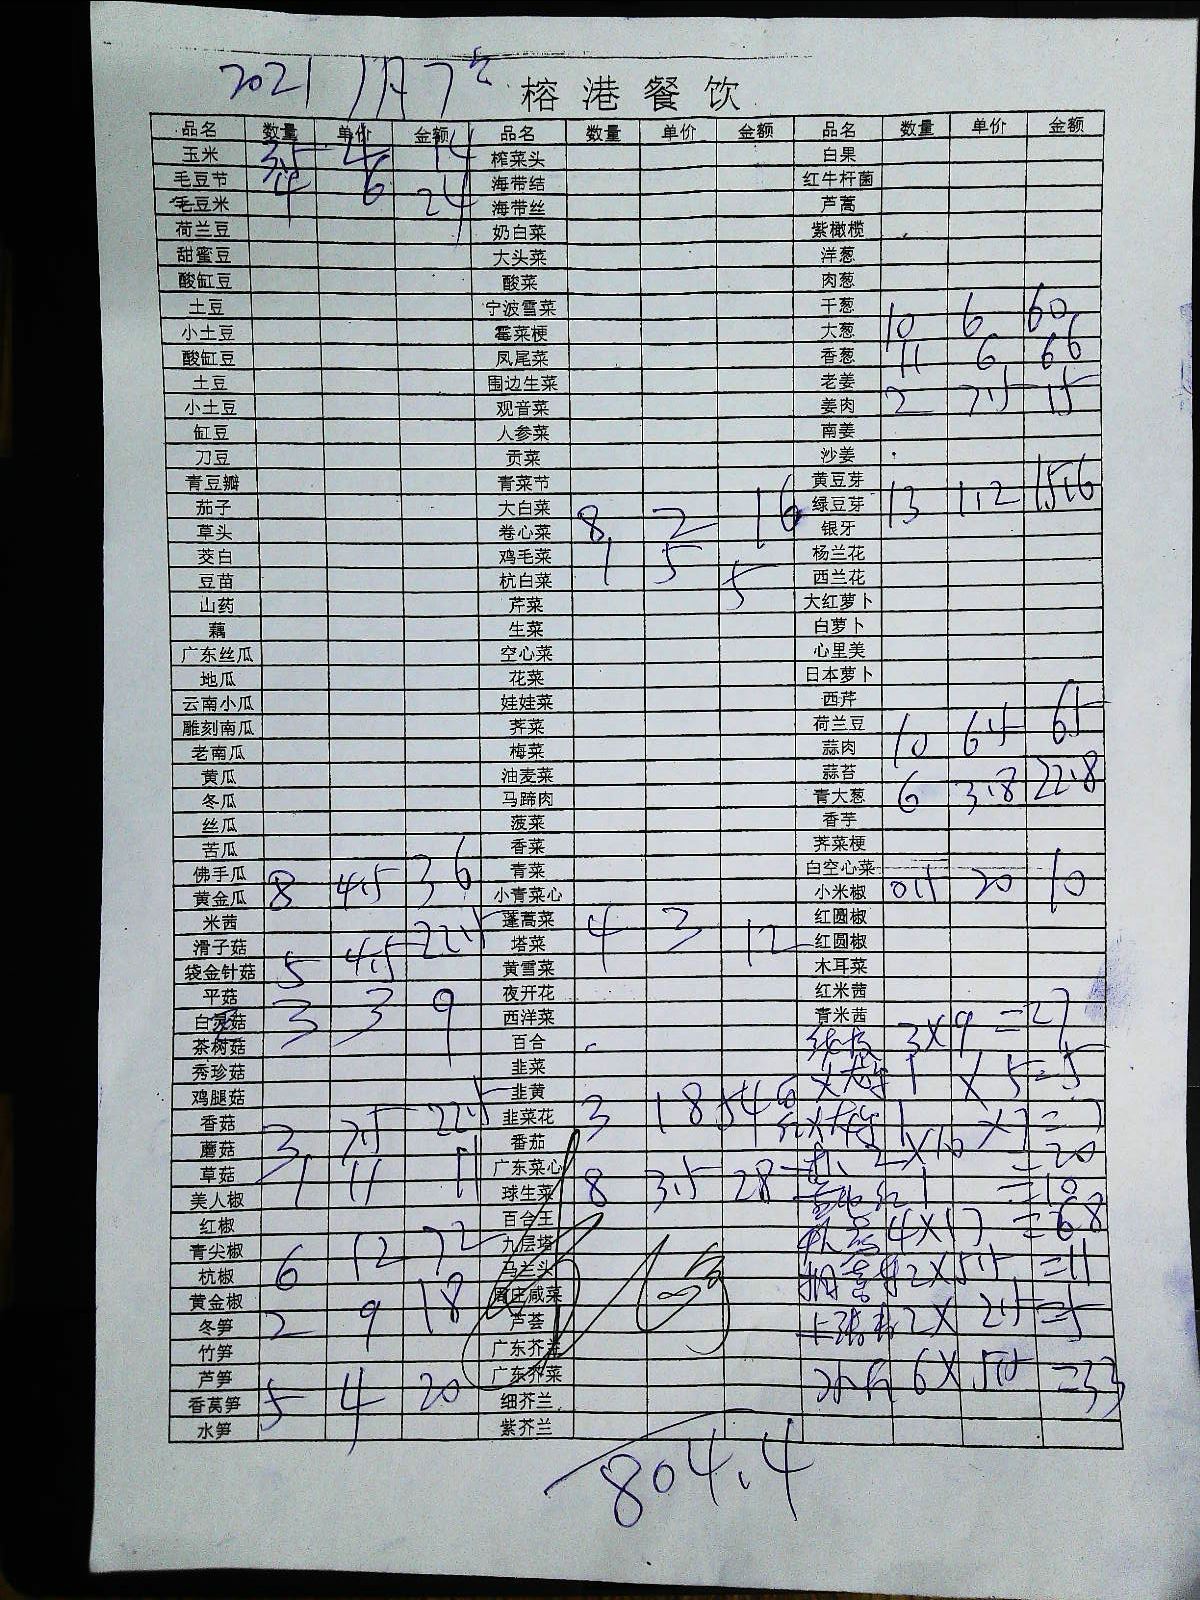 2021 1月7号
榕港餐饮
品名 数量 单价 金额 品名 数量 单价 金额 品名 数量 单价 金额
玉米 3.5 4 14 榨菜头 白果
毛豆节 4 6 24 海带结 红牛杆菌
毛豆米 海带丝 芦蒿
荷兰豆 奶白菜 紫橄榄
甜蜜豆 大头菜 洋葱
酸缸豆 酸菜 肉葱
土豆 宁波雪菜 干葱
小土豆 霉菜梗 大葱 10 6 60
酸缸豆 凤尾菜 香葱 11 6 66
土豆 围边生菜 老姜
小土豆 观音菜 姜肉 2 7.5 15
缸豆 人参菜 南姜
刀豆 贡菜 沙姜
青豆瓣 青菜节 黄豆芽
茄子 大白菜 绿豆芽 13 1.2 15.6
草头 卷心菜 8 2 16 银牙
茭白 鸡毛菜 1 5 5 杨兰花
豆苗 杭白菜 西兰花
山药 芹菜 大红萝卜
藕 生菜 白萝卜
广东丝瓜 空心菜 心里美
地瓜 花菜 日本萝卜
云南小瓜 娃娃菜 西芹
雕刻南瓜 荠菜 荷兰豆
老南瓜 梅菜 蒜肉 10 6.5 65
黄瓜 油麦菜 蒜苔
冬瓜 马蹄肉 青大葱 6 3.8 22.8
丝瓜 菠菜 香芋
苦瓜 香菜 荠菜梗
佛手瓜 青菜 白空心菜
黄金瓜 8 4.5 36 小青菜心 小米椒 0.5 20 10
米茜 蓬蒿菜 4 3 12 红圆椒
滑子菇 塔菜 红圆椒
袋金针菇 5 4.5 22.5 黄雪菜 木耳菜
平菇 夜开花 红米茜
白灵菇 3 3 9 西洋菜 青米茜
茶树菇 百合 3×9 =27
秀珍菇 韭菜 1 × 5=5
鸡腿菇 韭黄
香菇 韭菜花 3 18 54 1 ×7=7
蘑菇 3 7.5 22.5 番茄 2×10 =20
草菇 1 11 11 广东菜心
美人椒 球生菜 8 3.5 28 1 =10
红椒 百合王 4×17 =68
青尖椒 九层塔
杭椒 6 12 72 马兰头 2×5.5 =11
黄金椒 周庄咸菜
冬笋 2 9 18 芦荟 2× 2.5 =5
竹笋 广东芥兰
芦笋 广东芥菜 6×5.5 =33
香莴笋 5 4 20 细芥兰
水笋 紫芥兰
804.4